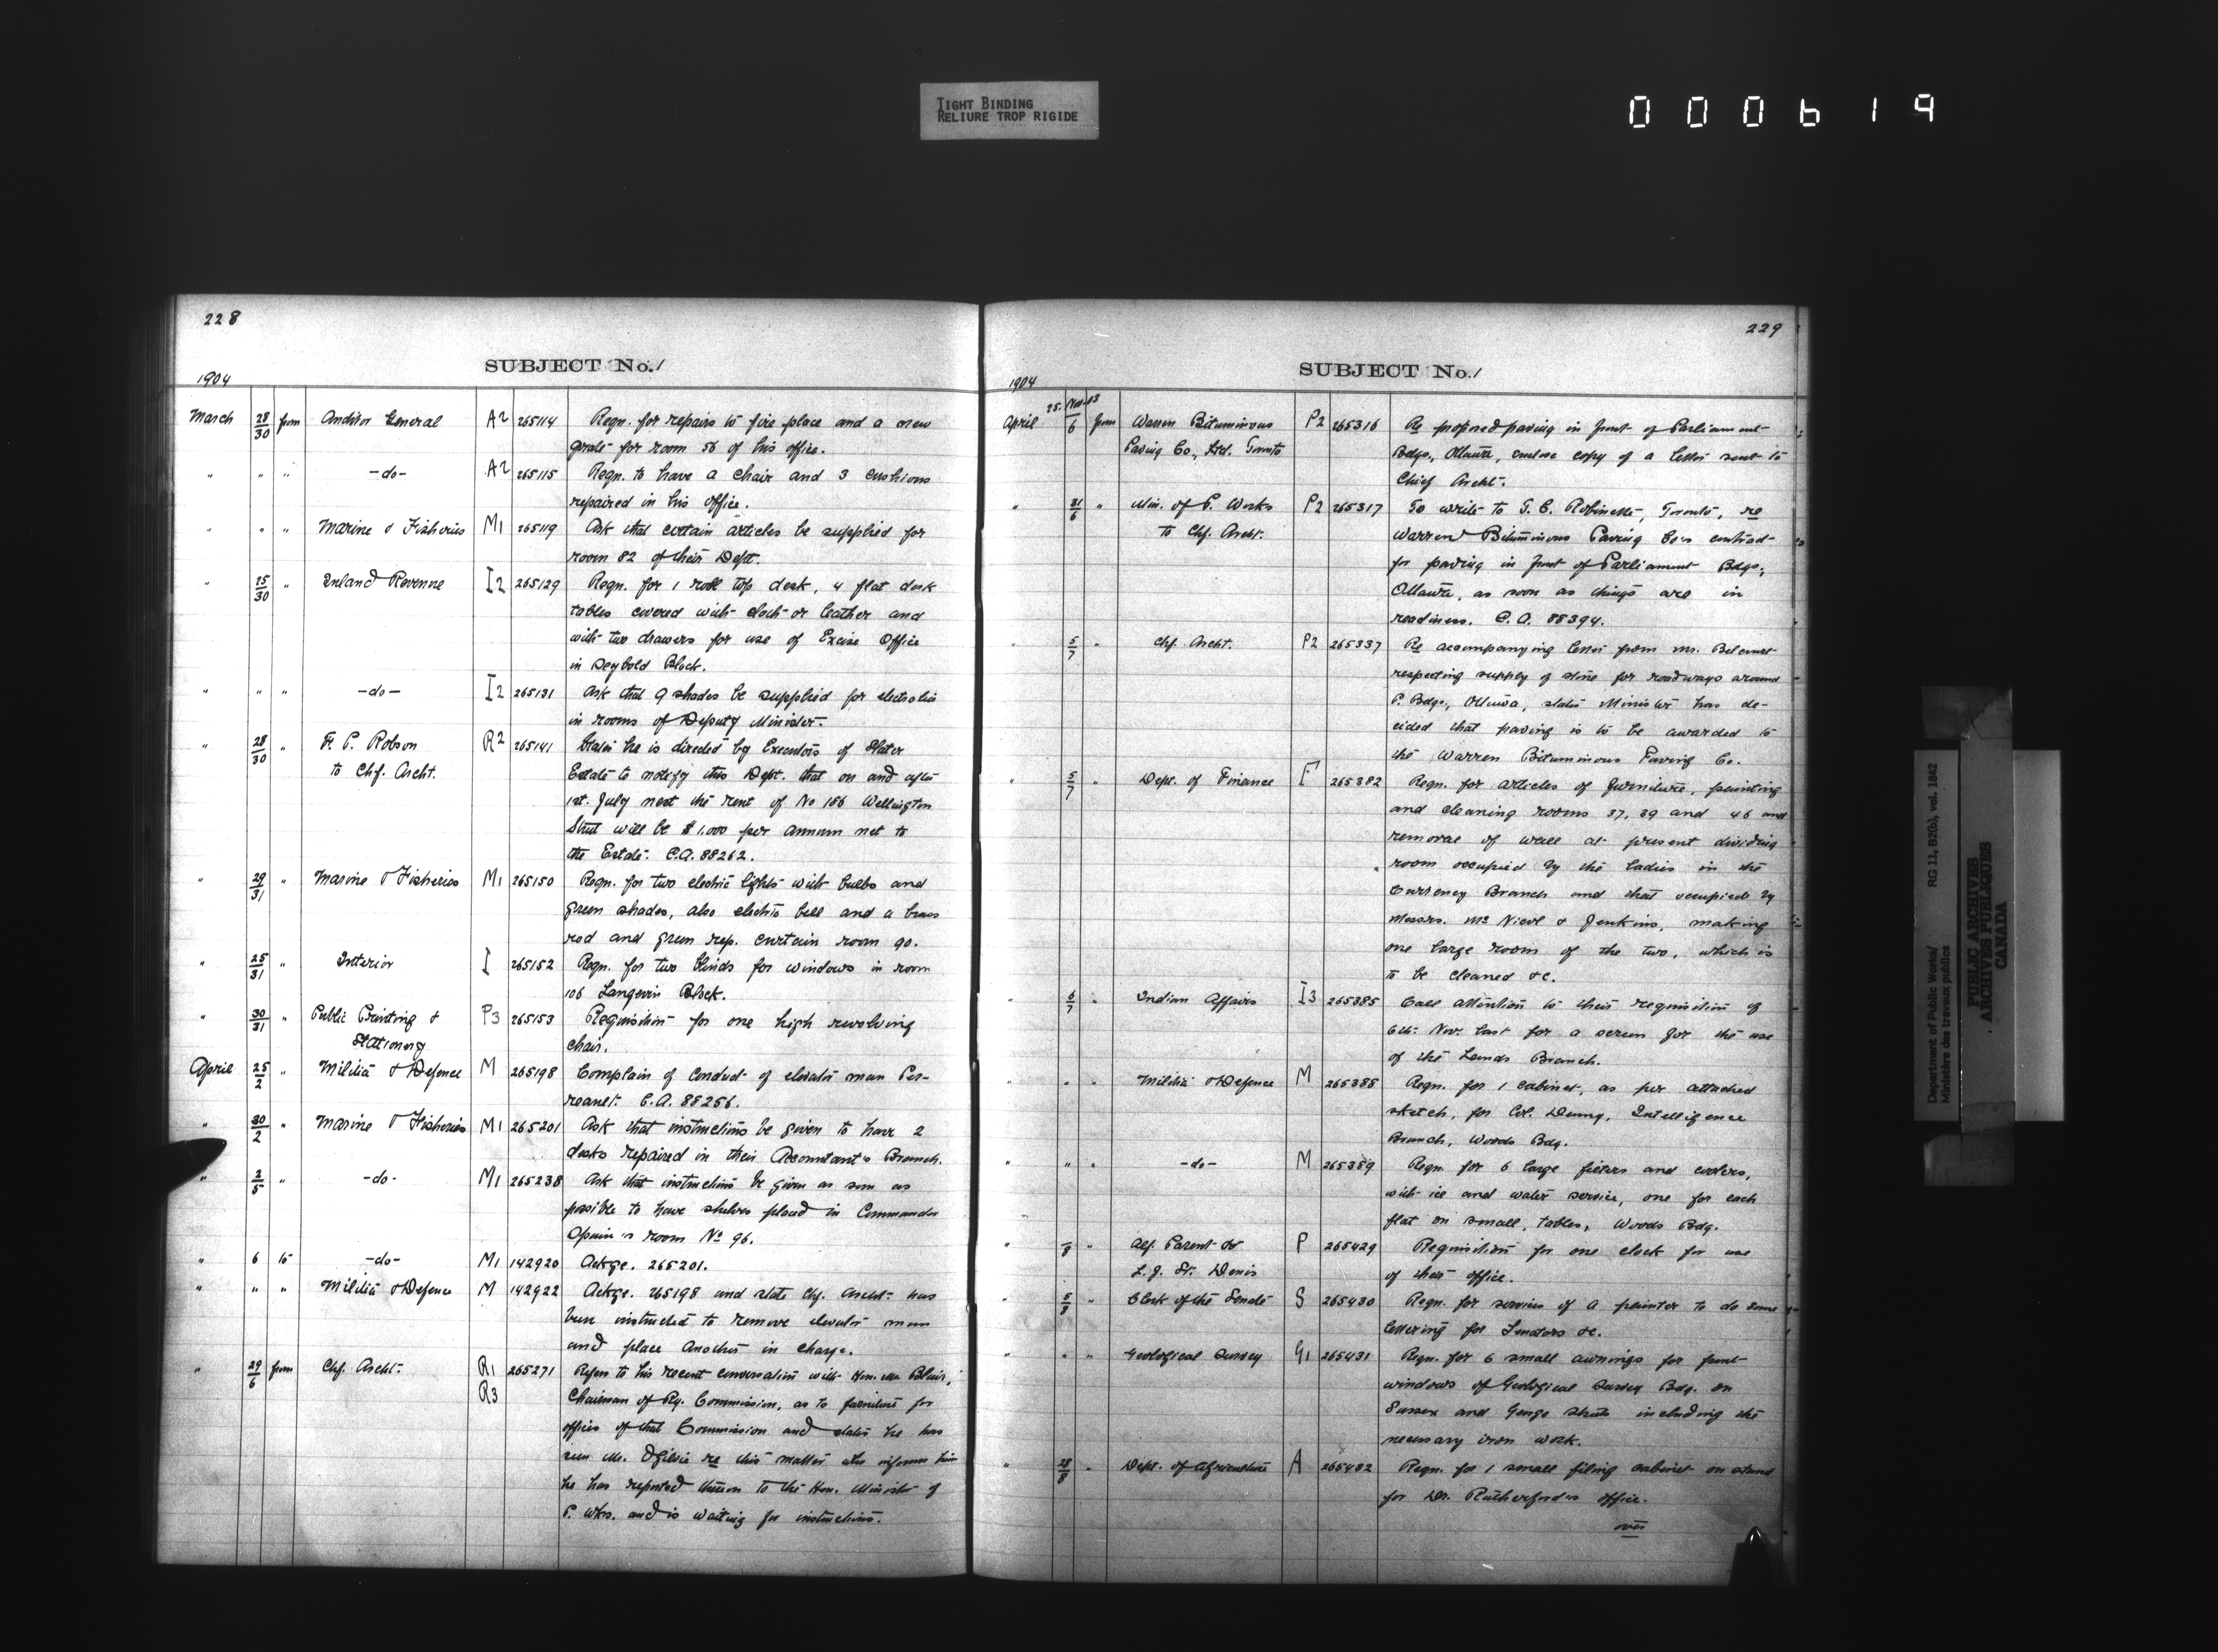 TIGHT BINDING
RELIURE TROP RIGIDE
000619
228
SUBJECT No. 1
1904
March 28/30 from Auditor General A2 265114 Reqn. for repairs to fire place and a new
grate for room 56 of his office.
" " " -do- A2 265115 Reqn. to have a chair and 3 cushions
repaired in his office.
" " " Marine & Fisheries M1 265119 Ask that certain articles be supplied for
room 82 of their Dept.
" 15/30 " Inland Revenue I2 265129 Reqn. for 1 roll top desk, 4 flat desk
tables covered with cloth or leather and
with two drawers for use of Excise Office
in Seybold Block.
" " " -do- I2 265131 Ask that 9 shades be supplied for electrolier
in rooms of Deputy Minister.
" 28/30 " F. P. Robson R2 265141 States he is directed by Executors of Slater
to Chf. Archt. Estate to notify this Dept. that on and after
1st. July next the rent of No 186 Wellington
Street will be $1,000 per annum net to
the Estate. C.A. 88262.
" 29/31 " Marine & Fisheries M1 265150 Reqn. for two electric lights with bulbs and
green shades, also electric bell and a brass
rod and green rep. curtain room 90.
" 25/31 " Interior I 265152 Reqn. for two blinds for windows in room
106 Langevin Block.
" 30/31 " Public Printing & P3 265153 Requisition for one high revolving
Stationery chair.
April 25/2 " Militia & Defence M 265198 Complain of conduct of elevator man
C.A. 88256.
" 30/2 " Marine & Fisheries M1 265201 Ask that instructions be given to have 2
desks repaired in their Accountant's Branch.
" 2/5 " -do- M1 265238 Ask that instructions be given as soon as
possible to have shelves placed in Commander
Spain's room No 96.
" 6 to -do- M1 142920 Ackge. 265201.
" " " Militia & Defence M 142922 Ackge. 265198 and state Chf. Archt. has
been instructed to remove elevator man
and place another in charge.
" 29/6 from Chf. Archt. R1 265271 Refers to his recent conversation with Hon. Mr. Blair,
R3 Chairman of Ry. Commission, as to furniture for
offices of that Commission and states he has
seen Mr. Ogilvie re this matter who informs him
he has reported thereon to the Hon. Minister of
P. Wks. and is waiting for instructions.
229
SUBJECT No. 1
1904
April 25. Nov. 03/6 from Warren Bituminous P2 265316 Re proposed paving in front of Parliament
Paving Co., Ltd. Toronto Bdgs., Ottawa, enclose copy of a letter sent to
Chief Archt.
" 31/6 " Min. of P. Works P2 265317 To write to T. C. Robinette, Toronto, re
to Chf. Archt. Warren Bituminous Paving Co's contract
for paving in front of Parliament Bdgs.,
Ottawa, as soon as things are in
readiness. C.A. 88394.
" 5/7 " Chf. Archt. P2 265337 Re accompanying letter from Mr. Belcourt
respecting supply of stone for roadways around
P. Bdgs., Ottawa, states Minister has de-
cided that paving is to be awarded to
the Warren Bituminous Paving Co.
" 5/7 " Dept. of Finance F 265382 Reqn. for articles of furniture, painting
and cleaning rooms 37, 39 and 46 and
removal of wall at present dividing
room occupied by the ladies in the
Currency Branch and that occupied by
Messrs. McNicol & Jenkins, making
one large room of the two, which is
to be cleaned &c.
" 6/7 " Indian Affairs I3 265385 Call attention to their requisition of
6th. Nov. last for a screen for the use
of the Lands Branch.
" " " Militia & Defence M 265388 Reqn. for 1 cabinet, as per attached
sketch, for Col. Denny, Intelligence
Branch, Woods Bdg.
" " " -do- M 265389 Reqn. for 6 large filters and coolers,
with ice and water service, one for each
flat on small, tables, Woods Bdg.
" /8 " Alf. Parent & P 265429 Requisition for one clock for use
L. J. St. Denis of their office.
" 5/8 " Clerk of the Senate S 265430 Reqn. for services of a painter to do some
lettering for Senators &c.
" " " Geological Survey G1 265431 Reqn. for 6 small awnings for front
windows of Geological Survey Bdg. on
Sussex and George streets including the
necessary iron work.
" 28/8 " Dept. of Agriculture A 265432 Reqn. for 1 small filing cabinet on stand
for Dr. Rutherford's office.
over
Department of Public Works/ RG 11, B2(b), vol. 1842
Ministère des travaux publics
PUBLIC ARCHIVES
ARCHIVES PUBLIQUES
CANADA